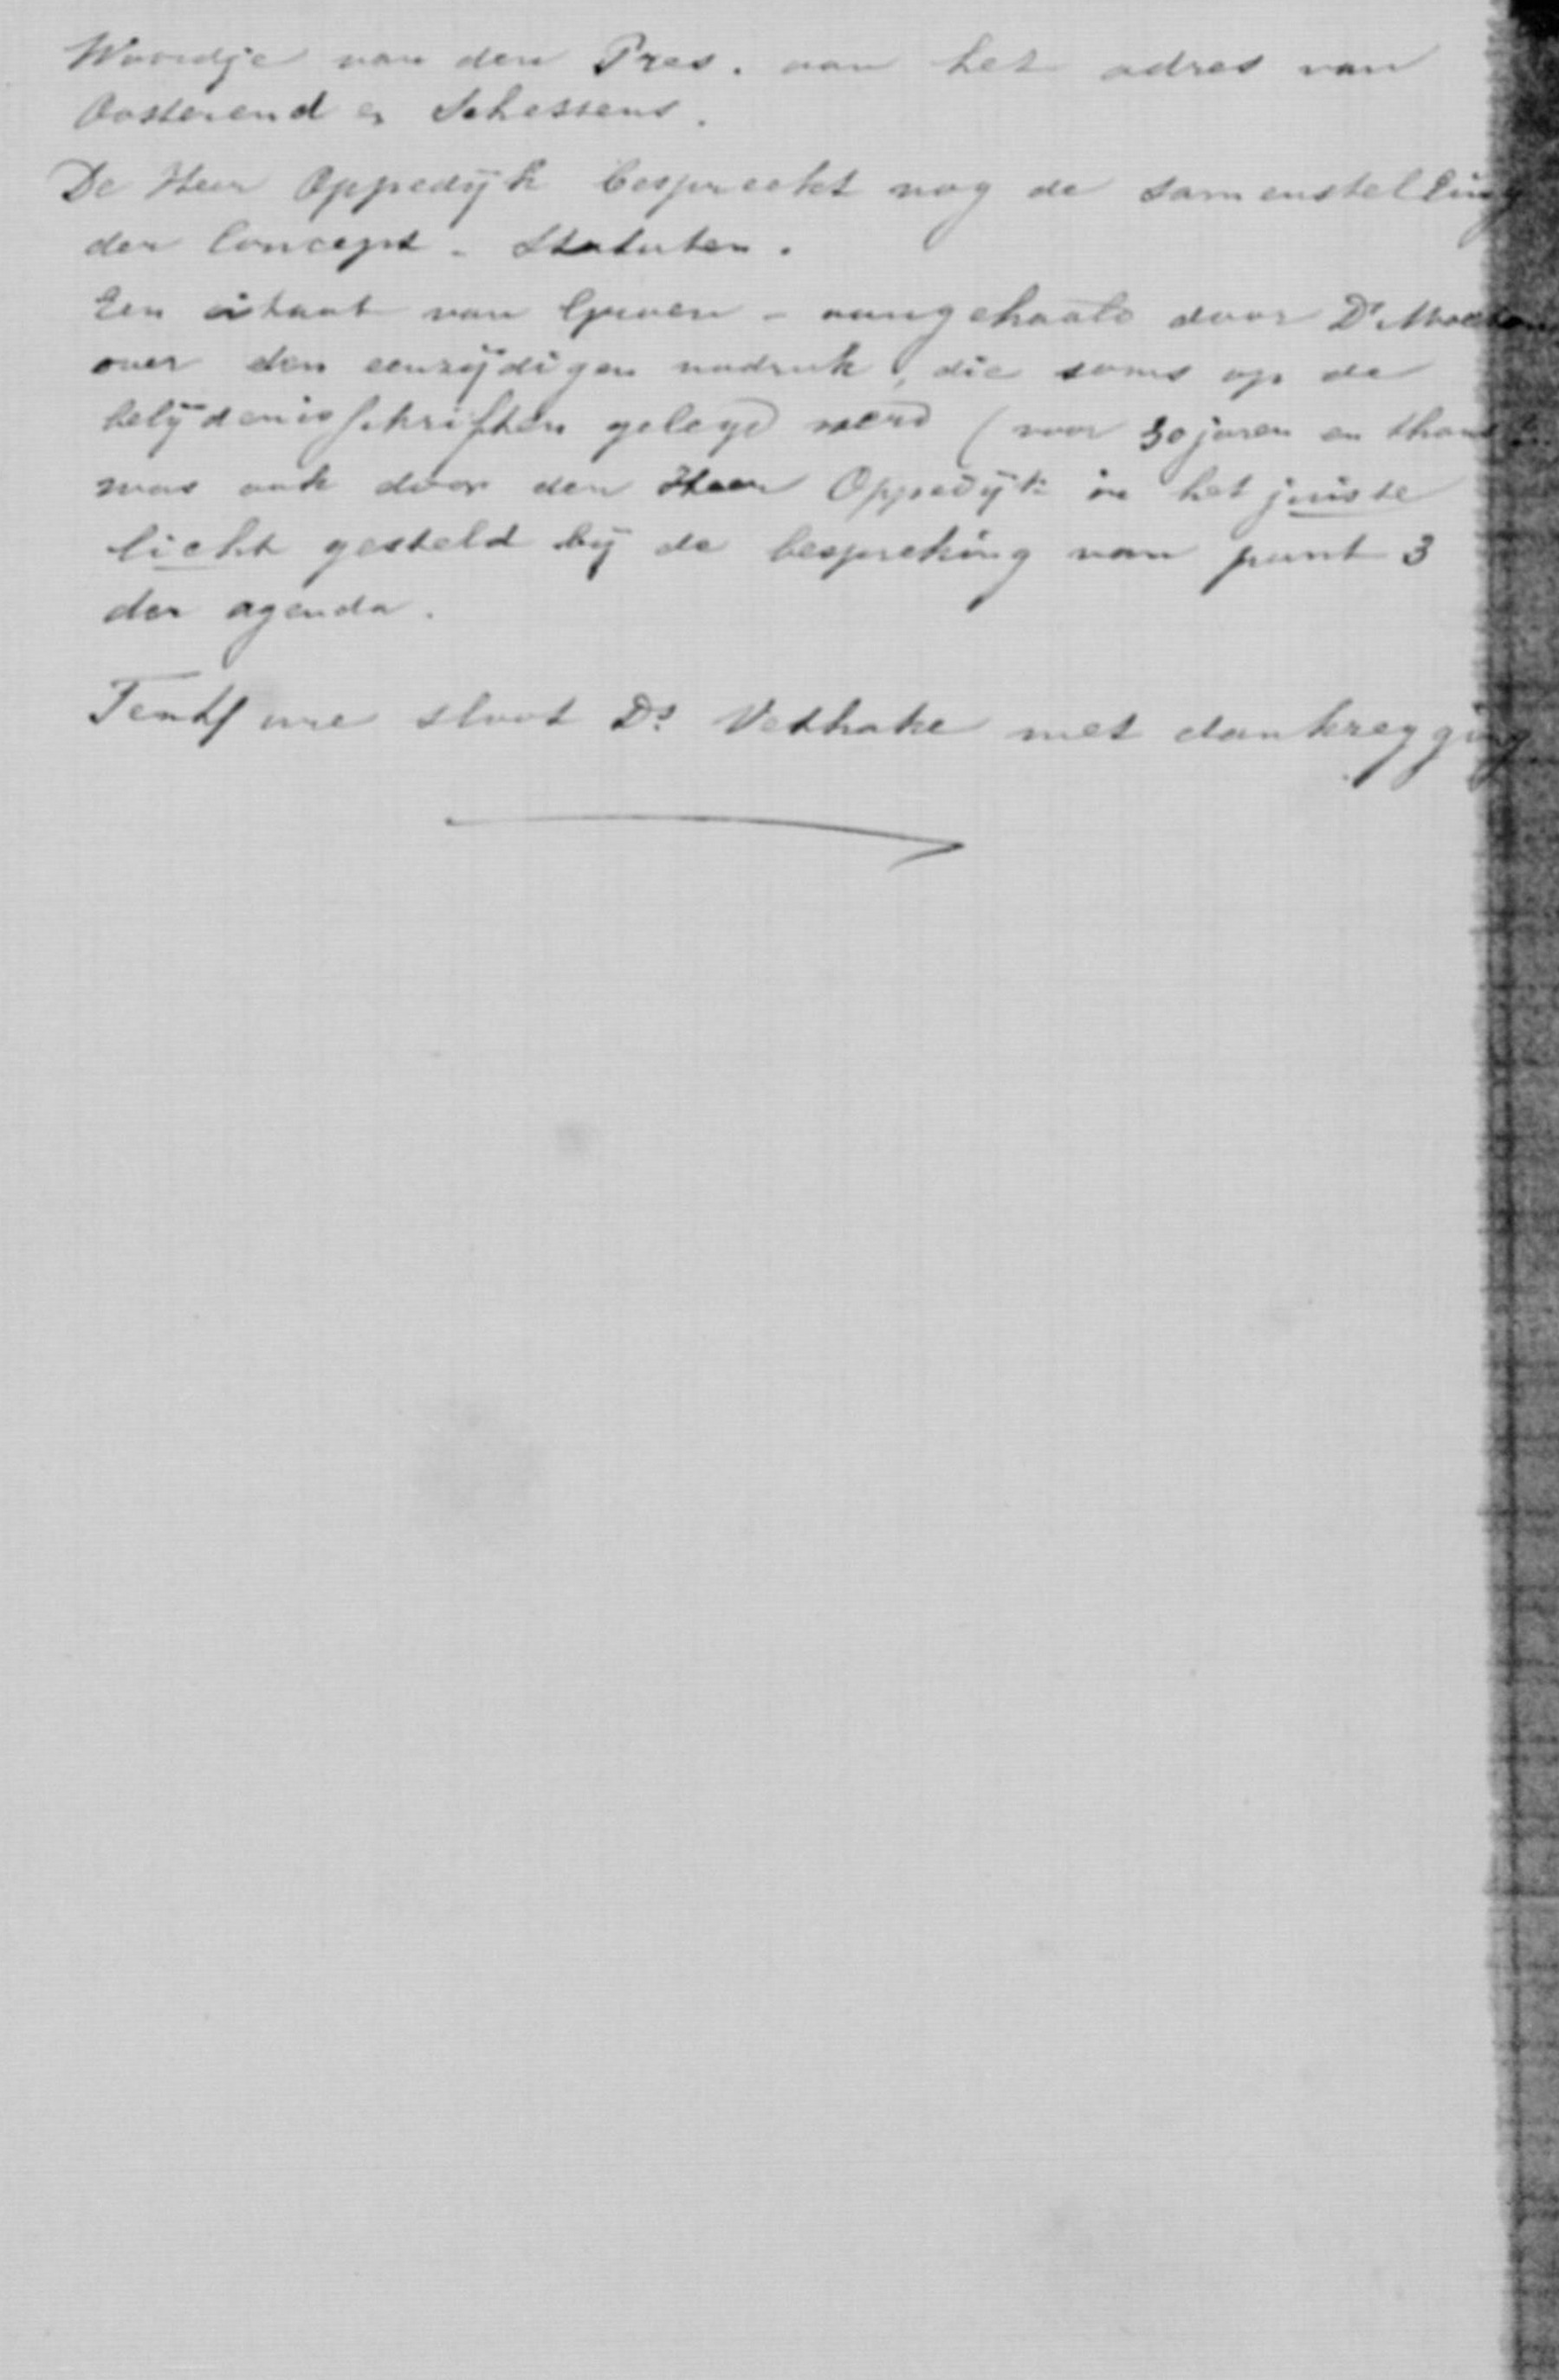 Woordje van den Pres. aan het adres van
Oosterend en
De Heer Oppedijk bespreekt nog de samenstelling
der Concept - Statuten.
Een citaat van - aangehaald door Dr
over den eenzijdigen nadruk, die soms op de
belijdenisschriften gelegd werd (voor 30 jaren en thans
was ook door den Heer Oppedijk in het juiste
licht gesteld bij de bespreking van punt 3
der agenda.
Ten ure sloot Ds. Vethake met dankzegging